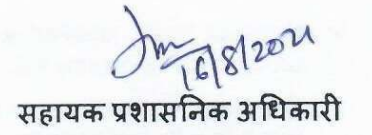 16/8/2021
सहायक प्रशासनिक अधिकारी